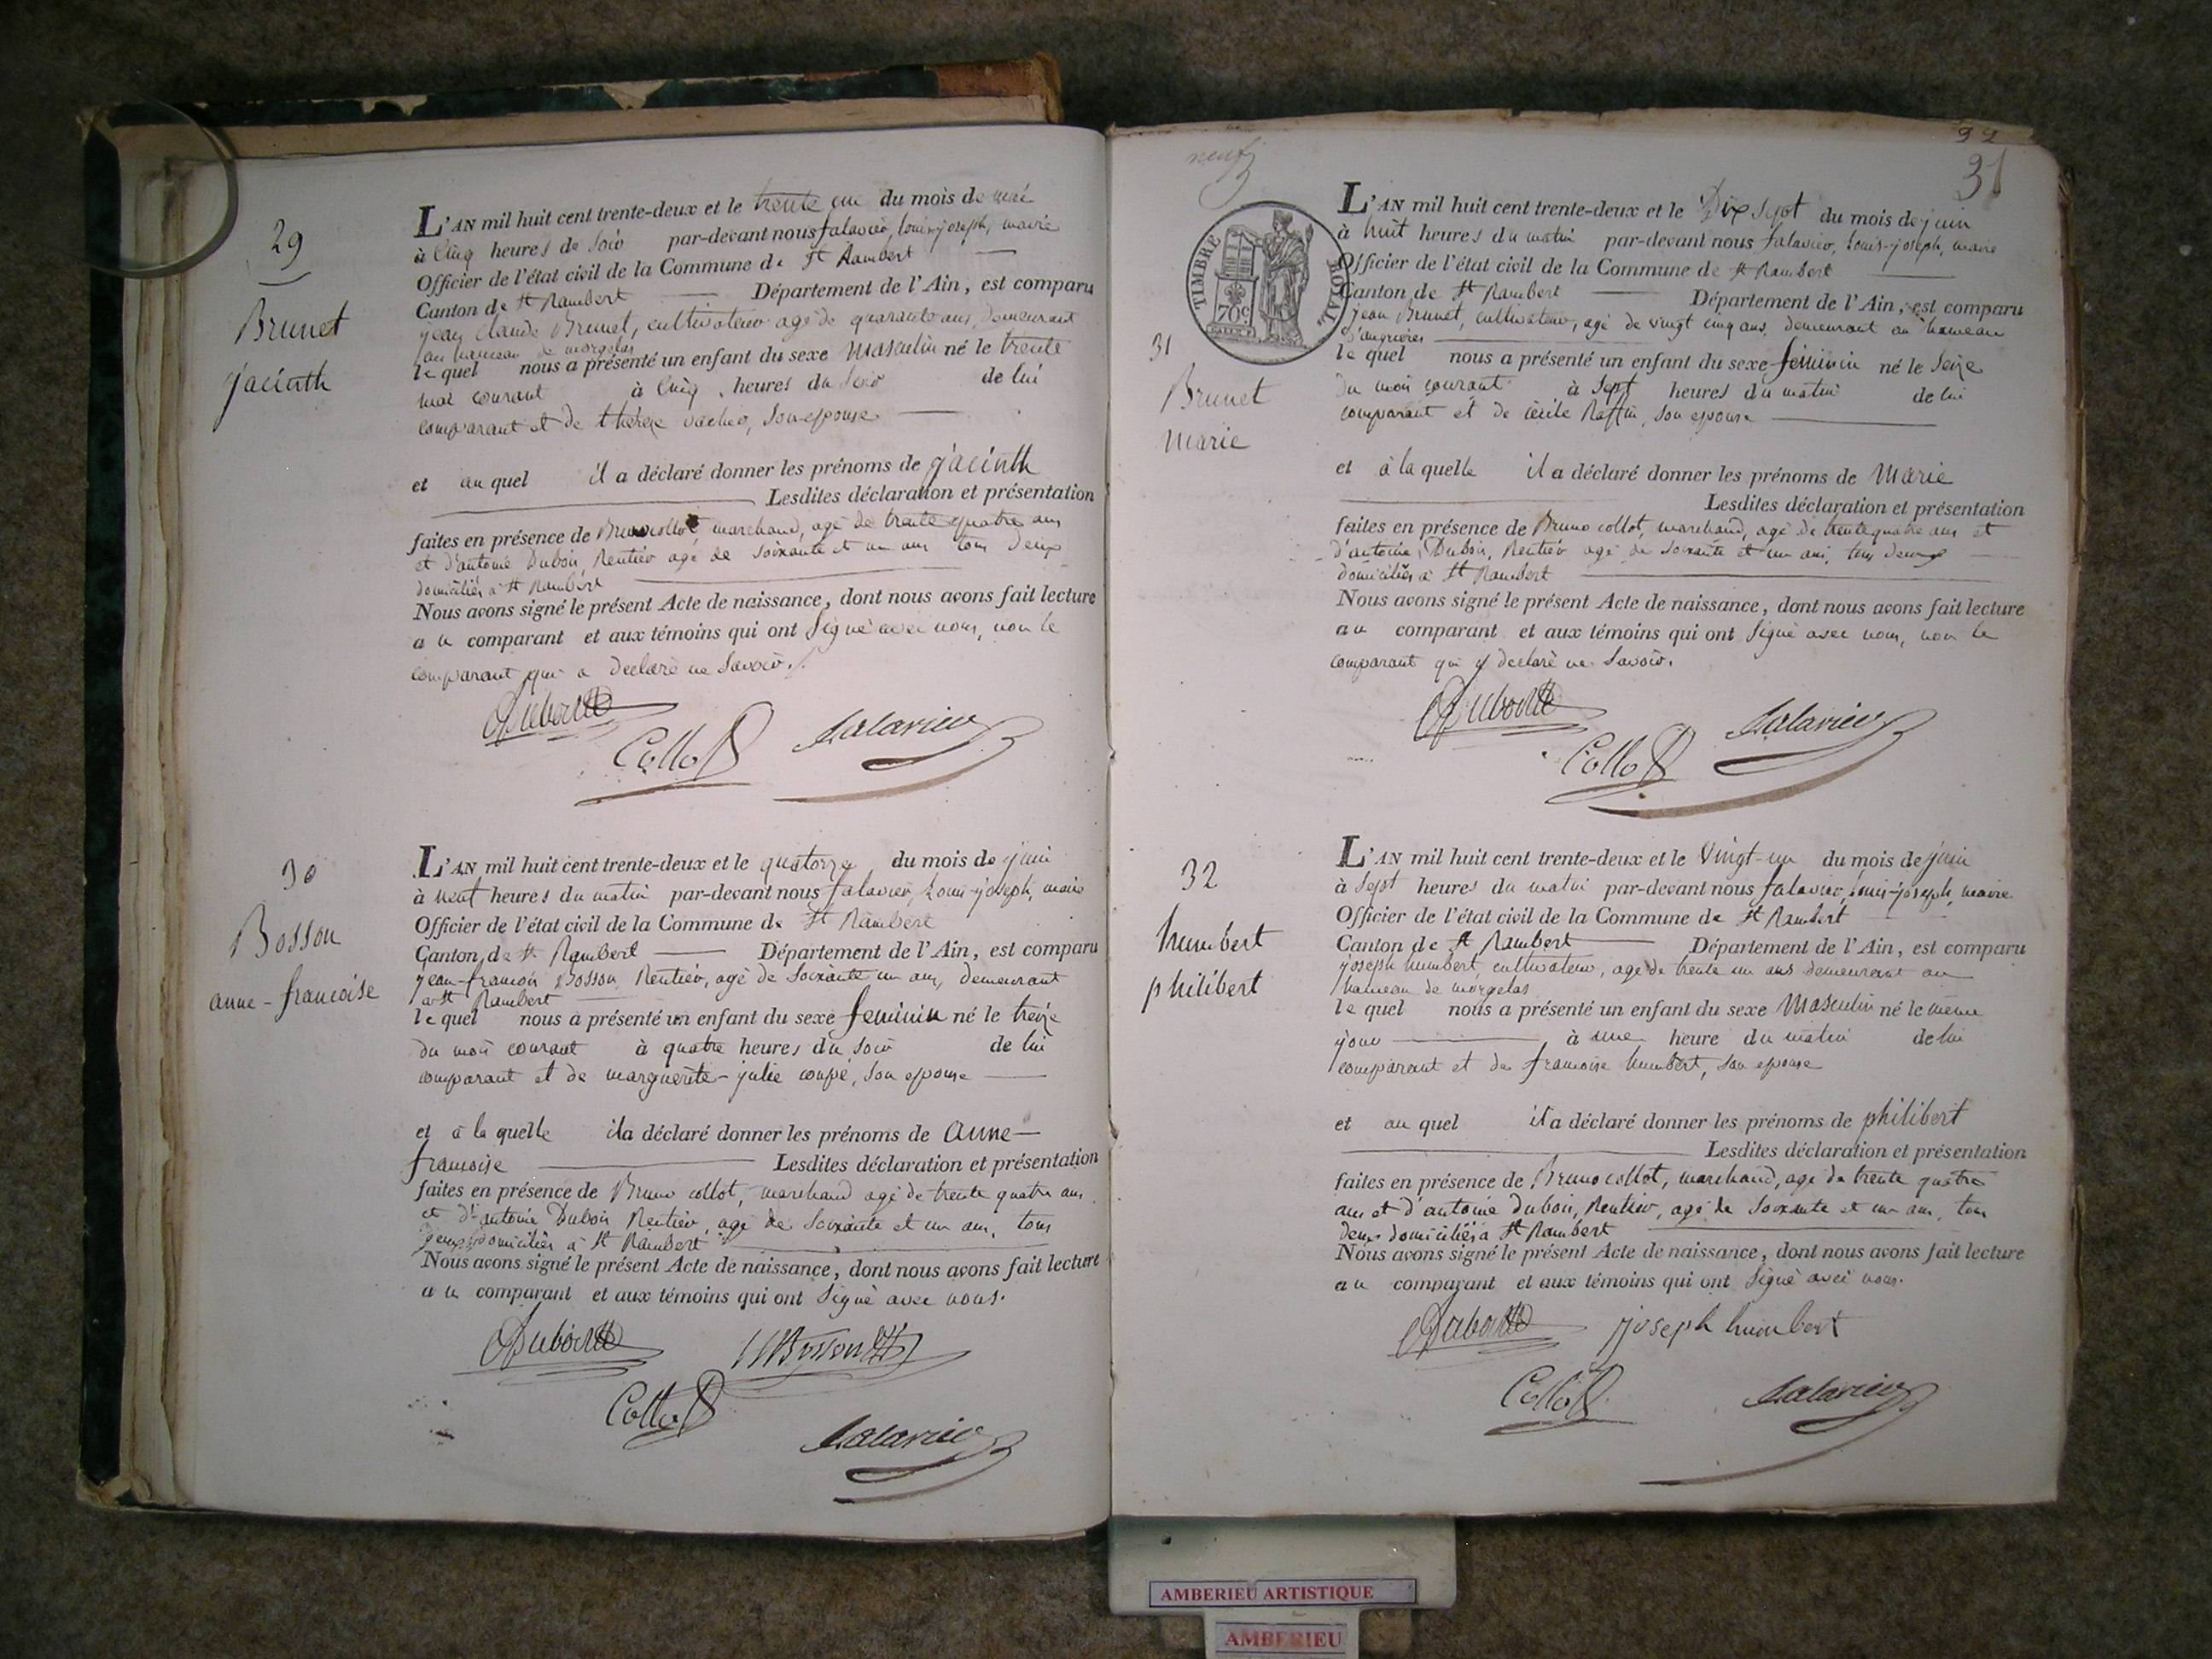 29
Brunet
jacinth
L'AN mil huit cent trente-deux et le trente un du mois de mai
à Cinq heures de soir par-devant nous falavier, louis-joseph, maire
Officier de l'état civil de la Commune de St Rambert
Canton de St Rambert Département de l'Ain, est comparu
jean Claude Brunet, cultivateur agé de quarante ans, demeurant
au hameau de morgelas
lequel nous a présenté un enfant du sexe Masculin né le trente
mai courant à Cinq heures du soir de lui
comparant et de thérèze vacher, son epouse
et au quel il a déclaré donner les prénoms de jacinth
Lesdites déclaration et présentation
faites en présence de Bruno collot marchand, agé de trente quatre ans
et d'antoine Dubois, Rentier agé de soixante et un ans tous deux
domiciliés à St Rambert
Nous avons signé le présent Acte de naissance, dont nous avons fait lecture
au comparant et aux témoins qui ont signé avec nous, non le
comparant qui a declaré ne savoir.
Dubois
Collot
falavier
30
Bosson
anne-francoise
L'AN mil huit cent trente-deux et le quatorze du mois de juin
à neuf heures du matin par-devant nous falavier, Louis-joseph, maire
Officier de l'état civil de la Commune de St Rambert
Canton de St Rambert Département de l'Ain, est comparu
jean-francois Bosson, Rentier, agé de Soixante un ans, demeurant
à St Rambert
lequel nous a présenté un enfant du sexe feminin né le treize
du mois courant à quatre heures du soir de lui
comparant et de marguerite-julie coupé, son epouse
et à la quelle il a déclaré donner les prénoms de anne-
francoise Lesdites déclaration et présentation
faites en présence de Bruno collot, marchand agé de trente quatre ans
et d'antoine Dubois Rentier, agé de soixante et un ans, tous
deux domiciliés à St Rambert
Nous avons signé le présent Acte de naissance, dont nous avons fait lecture
au comparant et aux témoins qui ont signé avec nous.
Dubois
Bosson
Collot
falavier
32
31
neuf
TIMBRE ROYAL
70c
31
Brunet
Marie
L'AN mil huit cent trente-deux et le Dix sept du mois de juin
à huit heures du matin par-devant nous falavier, Louis-joseph, maire
Officier de l'état civil de la Commune de St Rambert
Canton de St Rambert Département de l'Ain, est comparu
jean Brunet, cultivateur, agé de vingt cinq ans, demeurant au hameau
d'angrieres
lequel nous a présenté un enfant du sexe féminin né le seize
du mois courant à sept heures du matin de lui
comparant et de cécile Raffin, son epouse
et à la quelle il a déclaré donner les prénoms de Marie
Lesdites déclaration et présentation
faites en présence de Bruno collot, marchand, agé de trente quatre ans et
d'antoine Dubois, Rentier agé de soixante et un ans, tous deux
domiciliés à St Rambert
Nous avons signé le présent Acte de naissance, dont nous avons fait lecture
au comparant et aux témoins qui ont signé avec nous, non le
comparant qui y declaré ne savoir.
Dubois
Collot
falavier
32
humbert
philibert
L'AN mil huit cent trente-deux et le Vingt-un du mois de juin
à sept heures du matin par-devant nous falavier, louis-joseph, maire
Officier de l'état civil de la Commune de St Rambert
Canton de St Rambert Département de l'Ain, est comparu
joseph humbert, cultivateur, agé de trente un ans demeurant au
hameau de morgelas
lequel nous a présenté un enfant du sexe Masculin né le même
jour à une heure du matin de lui
comparant et de francoise humbert, son epouse
et au quel il a déclaré donner les prénoms de philibert
Lesdites déclaration et présentation
faites en présence de Bruno collot, marchand, agé de trente quatre
ans et d'antoine dubois, Rentier, agé de soixante et un ans, tous
deux domiciliés à St Rambert
Nous avons signé le présent Acte de naissance, dont nous avons fait lecture
au comparant et aux témoins qui ont signé avec nous.
Dubois
joseph humbert
Collot
falavier
AMBERIEU ARTISTIQUE
AMBERIEU